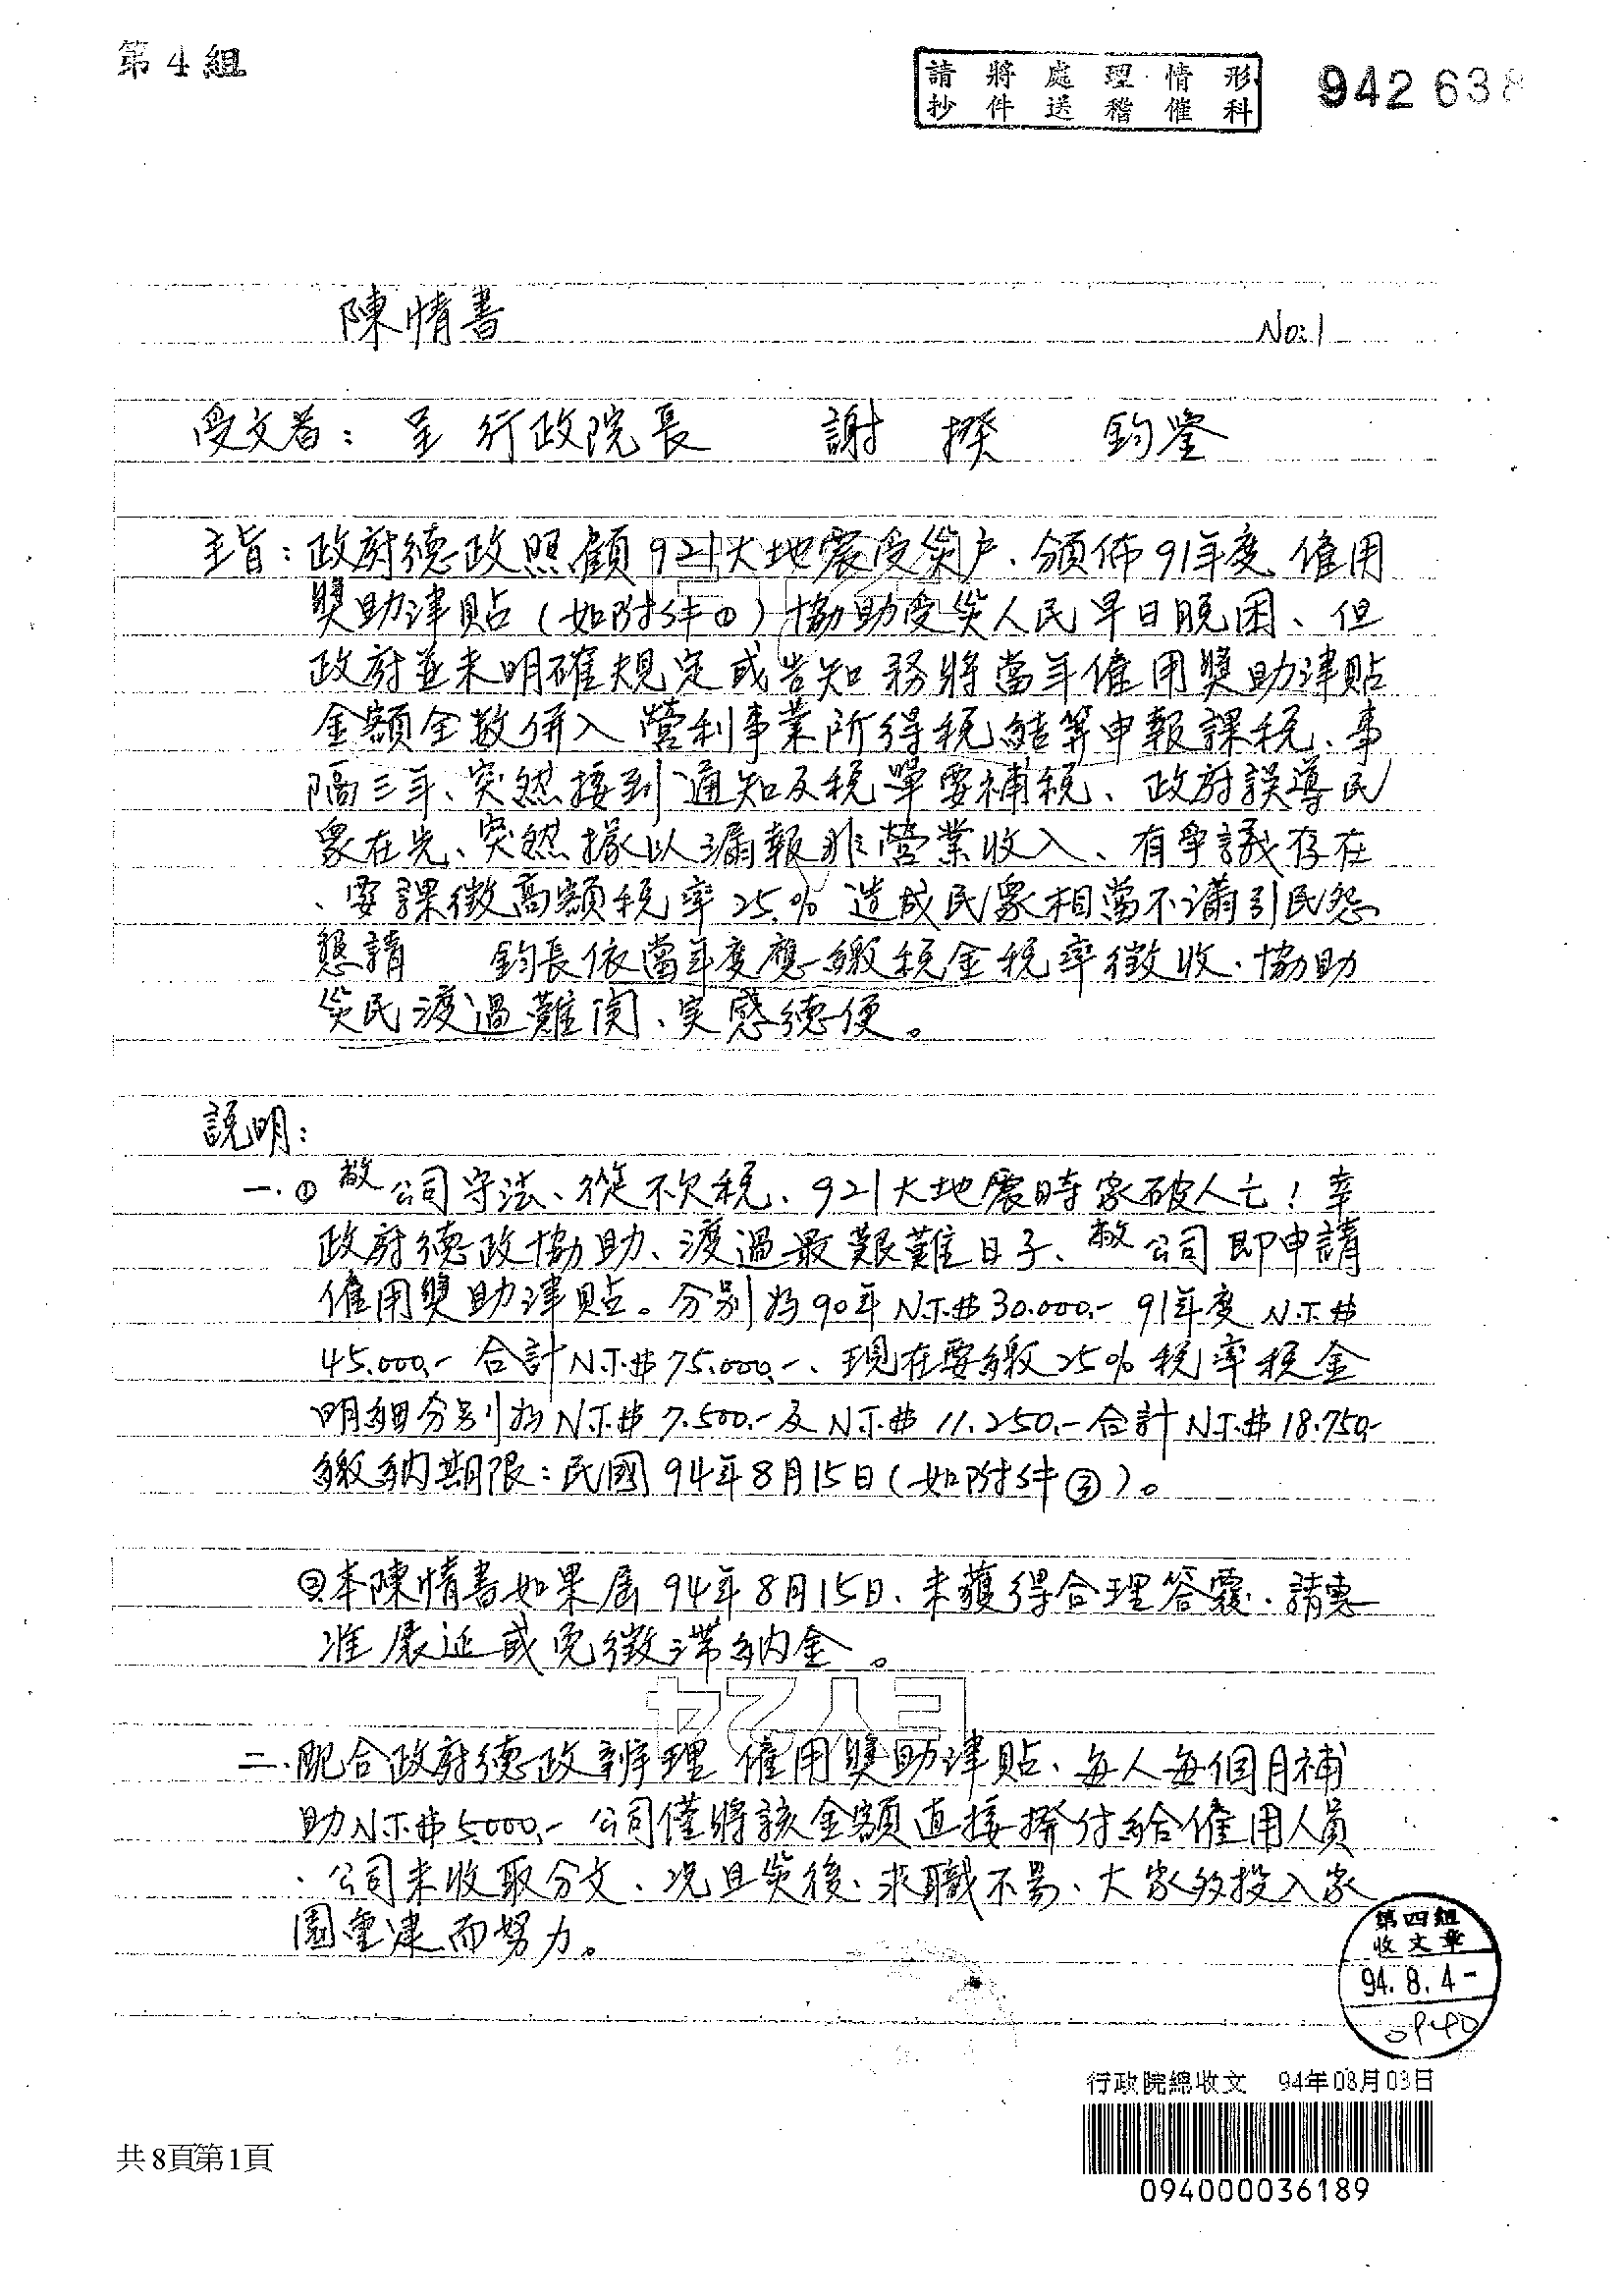 第4組
請將處理情形
抄件送稽催科
942638
陳情書
No:1
受文者：呈 行政院長 謝 揆 鈞鑒
主旨：政府德政照顧921大地震受災戶、頒佈91年度 僱用
獎助津貼（如附件①）協助受災人民早日脫困、但
政府並未明確規定或告知 務將當年僱用獎助津貼
金額全數併入 營利事業所得稅結算申報課稅、事
隔三年、突然接到通知及稅單要補稅、政府誤導民
眾在先、突然據以漏報非營業收入、有爭議存在
、要課徵高額稅率25% 造成民眾相當不滿引民怨
懇請 鈞長依當年度應繳稅金稅率徵收、協助
災民渡過難関、实感德便。
說明：
一.①敝公司守法、從不欠稅、921大地震時家破人亡！幸
政府德政協助、渡過最艱難日子、敝公司即申請
僱用獎助津貼。分別為90年N.T.$30.000.- 91年度 N.T.$
45.000.- 合計N.T.$75.000.-、現在要繳25%稅率稅金
明細分別為N.T.$7.500.-及N.T.$11.250.-合計N.T.$18.750.-
繳納期限：民國94年8月15日（如附件②）。
②本陳情書如果屆94年8月15日、未獲得合理答覆、請惠
准展延或免徵滯納金。
二.配合政府德政辨理 僱用獎助津貼、每人每個月補
助N.T.$5.000.-公司僅將該金額直接撥付給僱用人員
、公司未收取分文、況且災後、求職不易、大家多投入家
園重建而努力。
第四組
收文章
94.8.4-
0940
行政院總收文 94年08月03日
094000036189
共8頁第1頁